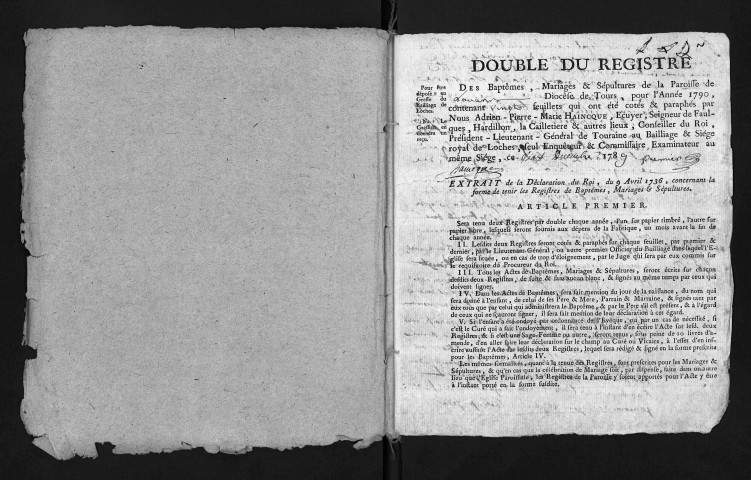 DOUBLE DU REGISTRE
Pour être
déposé au
Greffe du
Bailliage de
Loches.
Des Baptêmes, Mariages & Sépultures de la Paroisse de
Diocèse de Tours, pour l'Année 1790,
contenant feuillets qui ont été cotés & paraphés par
Nous Adrien-Pierre-Marie HAINCQUE, Ecuyer, Seigneur de Faul-
ques, Hardillon, la Cailletiere & autres lieux, Conseiller du Roi,
Président-Lieutenant-Général de Touraine au Bailliage & Siége
royal de Loches, seul Enquêteur & Commissaire, Examinateur au
même Siége, ce 1789 premier
haincque
EXTRAIT de la Déclaration du Roi, du 9 Avril 1736, concernant la
forme de tenir les Registres de Baptêmes, Mariages & Sépultures.
ARTICLE PREMIER.
Sera tenu deux Registres par double chaque année, l'un sur papier timbré, l'autre sur
papier libre, lesquels seront fournis aux dépens de la Fabrique, un mois avant la fin de
chaque année.
II. Lesdits deux Registres seront cotés & paraphés sur chaque feuillet, par premier &
dernier, par le Lieutenant-Général, ou autre premier Officier du Bailliage dans lequel l'E-
glise sera située, ou en cas de trop d'éloignement, par le Juge qui sera par eux commis sur
le requisitoire du Procureur du Roi.
III. Tous les Actes de Baptêmes, Mariages & Sépultures, seront écrits sur chaque
desdits deux Registres, de suite & sans aucun blanc, & signés au même temps par ceux qui
doivent signer.
IV. Dans les Actes de Baptêmes, sera fait mention du jour de la naissance, du nom qui
sera donné à l'enfant, de celui de ses Pere & Mere, Parrain & Marraine, & signés tant par
eux tous que par celui qui administrera le Baptême, & par le Pere s'il est présent, & à l'égard
de ceux qui ne sçauront signer, il sera fait mention de leur déclaration à cet égard.
V. Si l'enfant a été ondoyé par ordonnance de l'Evêque, ou par un cas de nécessité, si
c'est le Curé qui a fait l'ondoyement, il sera tenu à l'instant d'en écrire l'Acte sur lesd. deux
Registres, & si c'est une Sage-Femme ou autre, seront tenus, sous peine de 10 livres d'a-
mende, d'en aller faire leur déclaration sur le champ au Curé ou Vicaire, à l'effet d'en ins-
crire aussitôt l'Acte sur lesdits deux Registres, lequel sera rédigé & signé en la forme prescrite
pour les Baptêmes, Article IV.
Les mêmes formalités, quant à la tenue des Registres, sont prescrites pour les Mariages &
Sépultures, & qu'en cas que la célébration de Mariage soit, par dispense, faite dans un autre
lieu que l'Eglise Paroissiale, les Registres de la Paroisse y soient apportés pour l'Acte y être
à l'instant porté en la forme susdite.